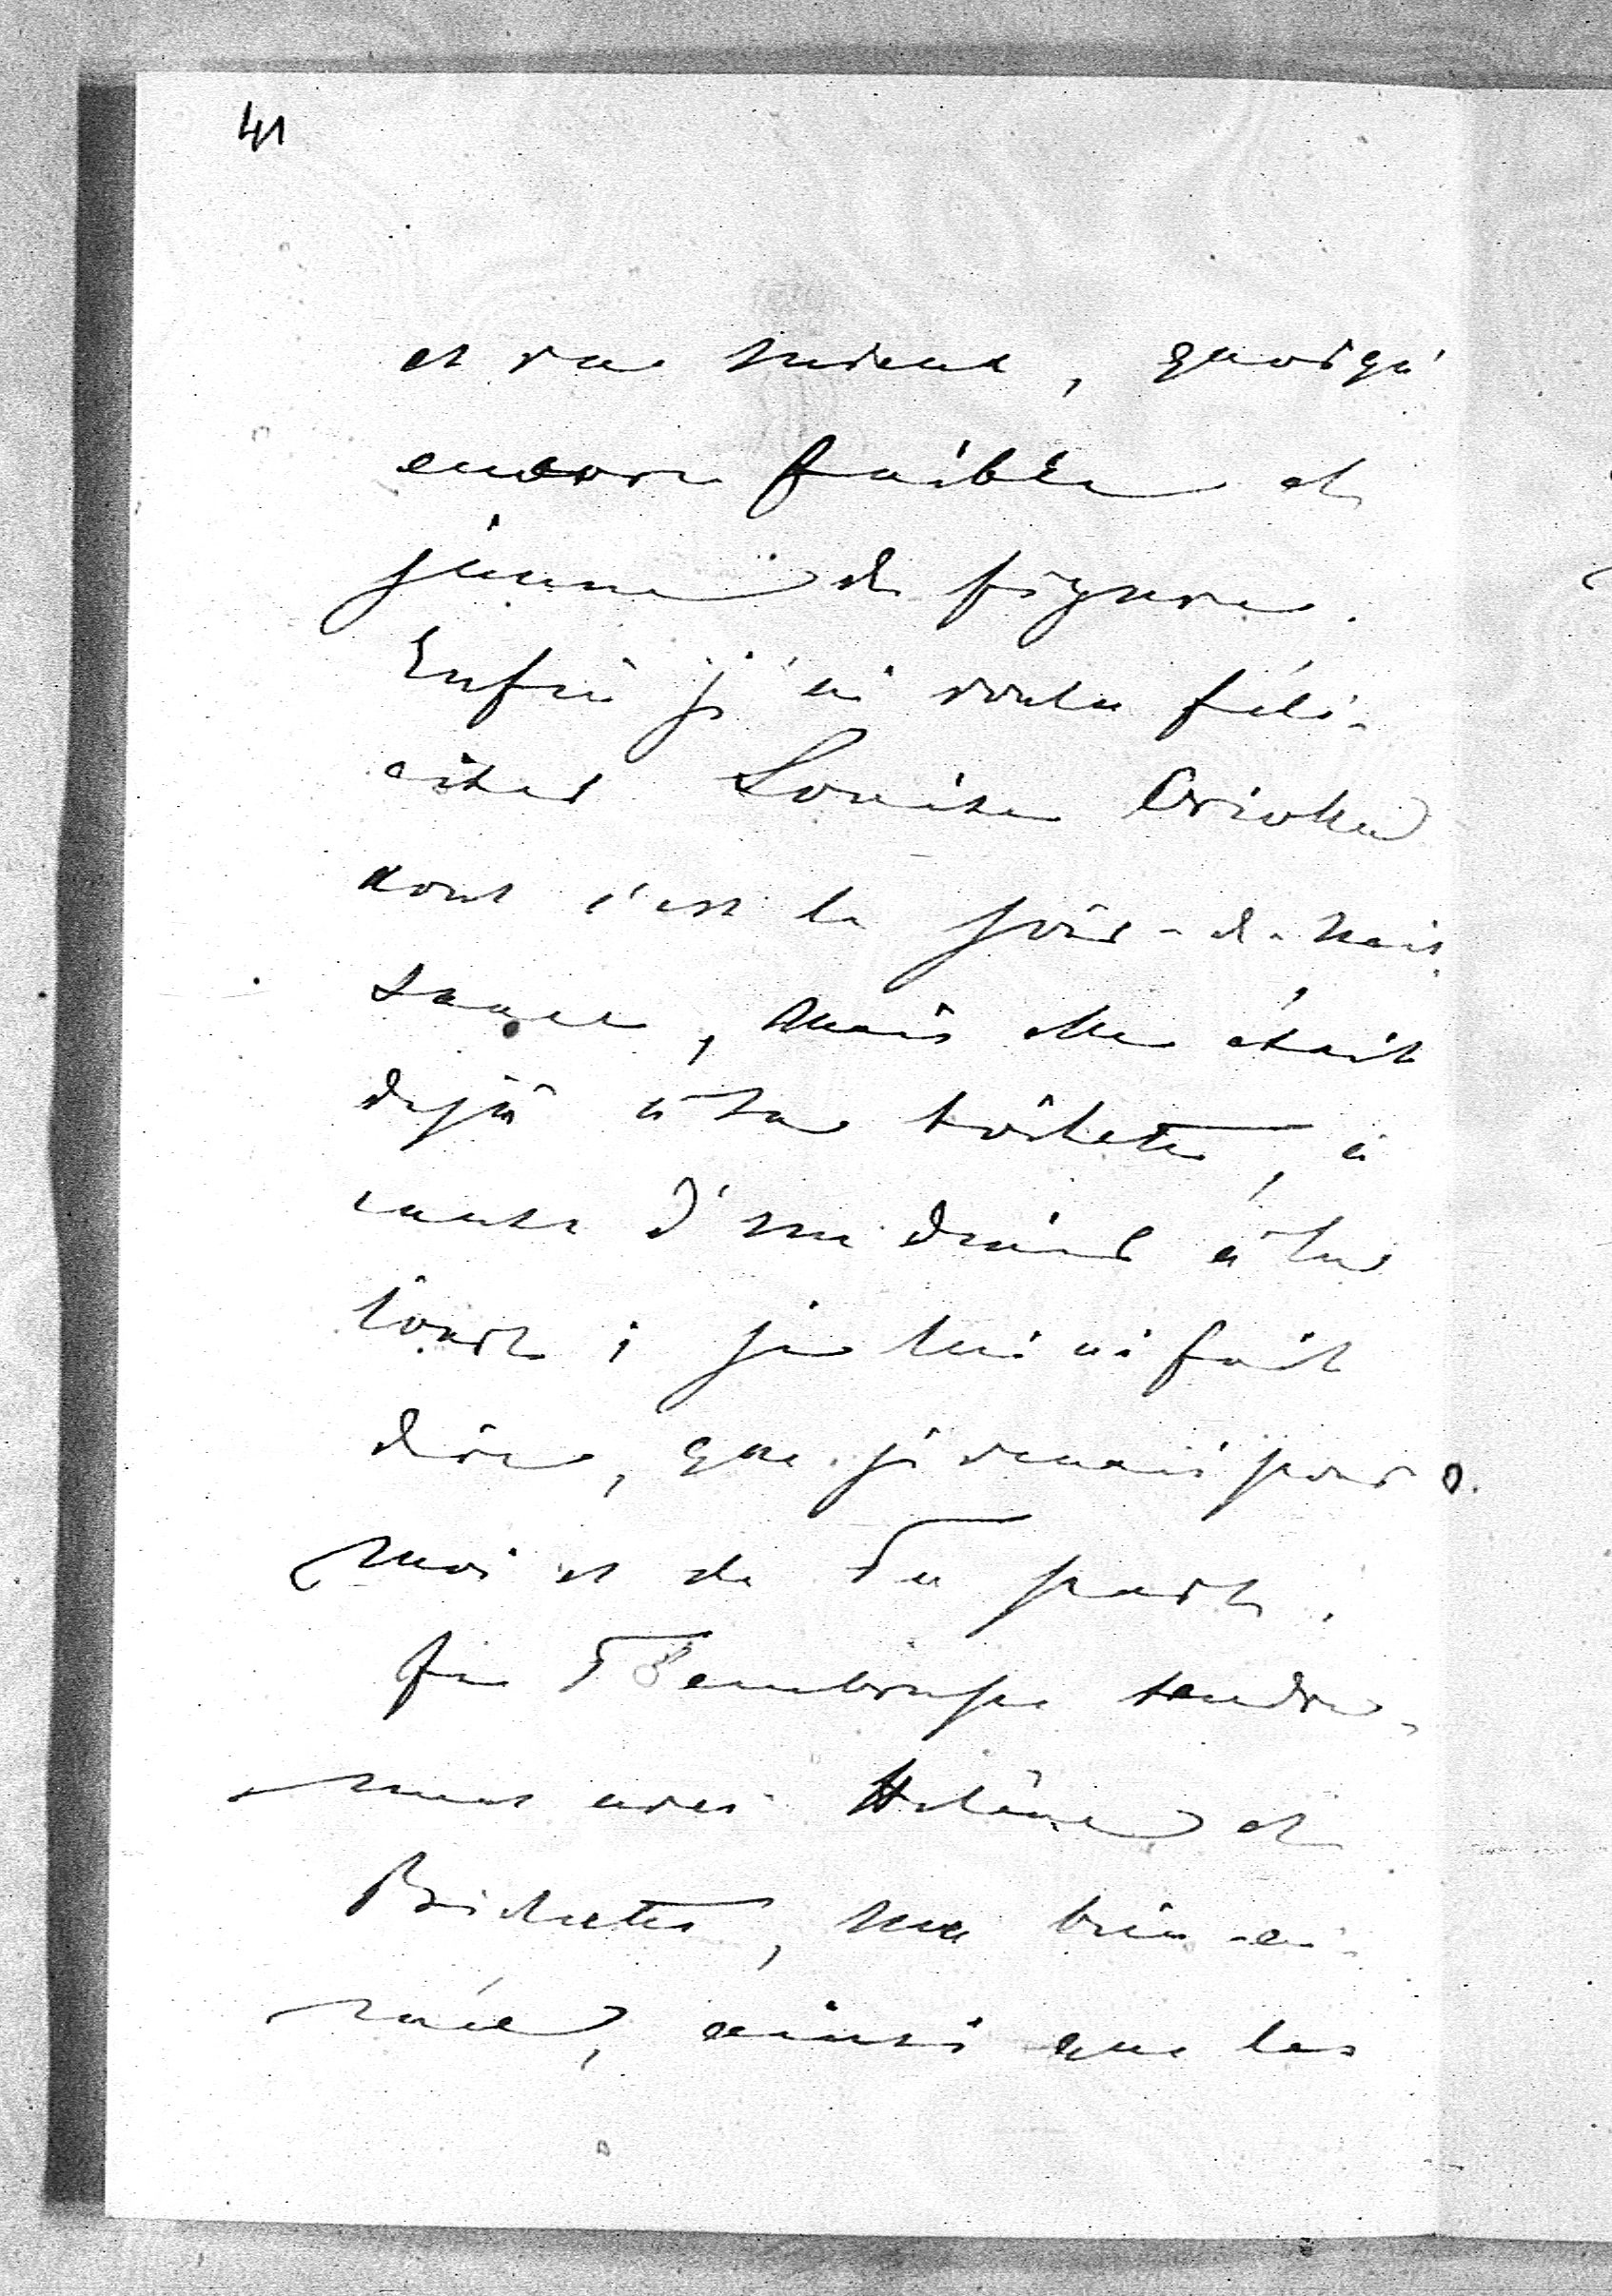 41
et va mieux, quoiqu'
encore faible et
jaune de figure.
Enfin j'ai voulu féli-
citer Louise
dont c'est le jour-de-nais
sance, mais elle était
dejà à sa toilette, à
cause d'un dîner à la
Court; je lui ai fait
dire, que je venais pour
moi et de Ta part.
Je T'embrasse tendre-
ment avec Hélène et
, ma bien-ai-
mée, ainsi que les